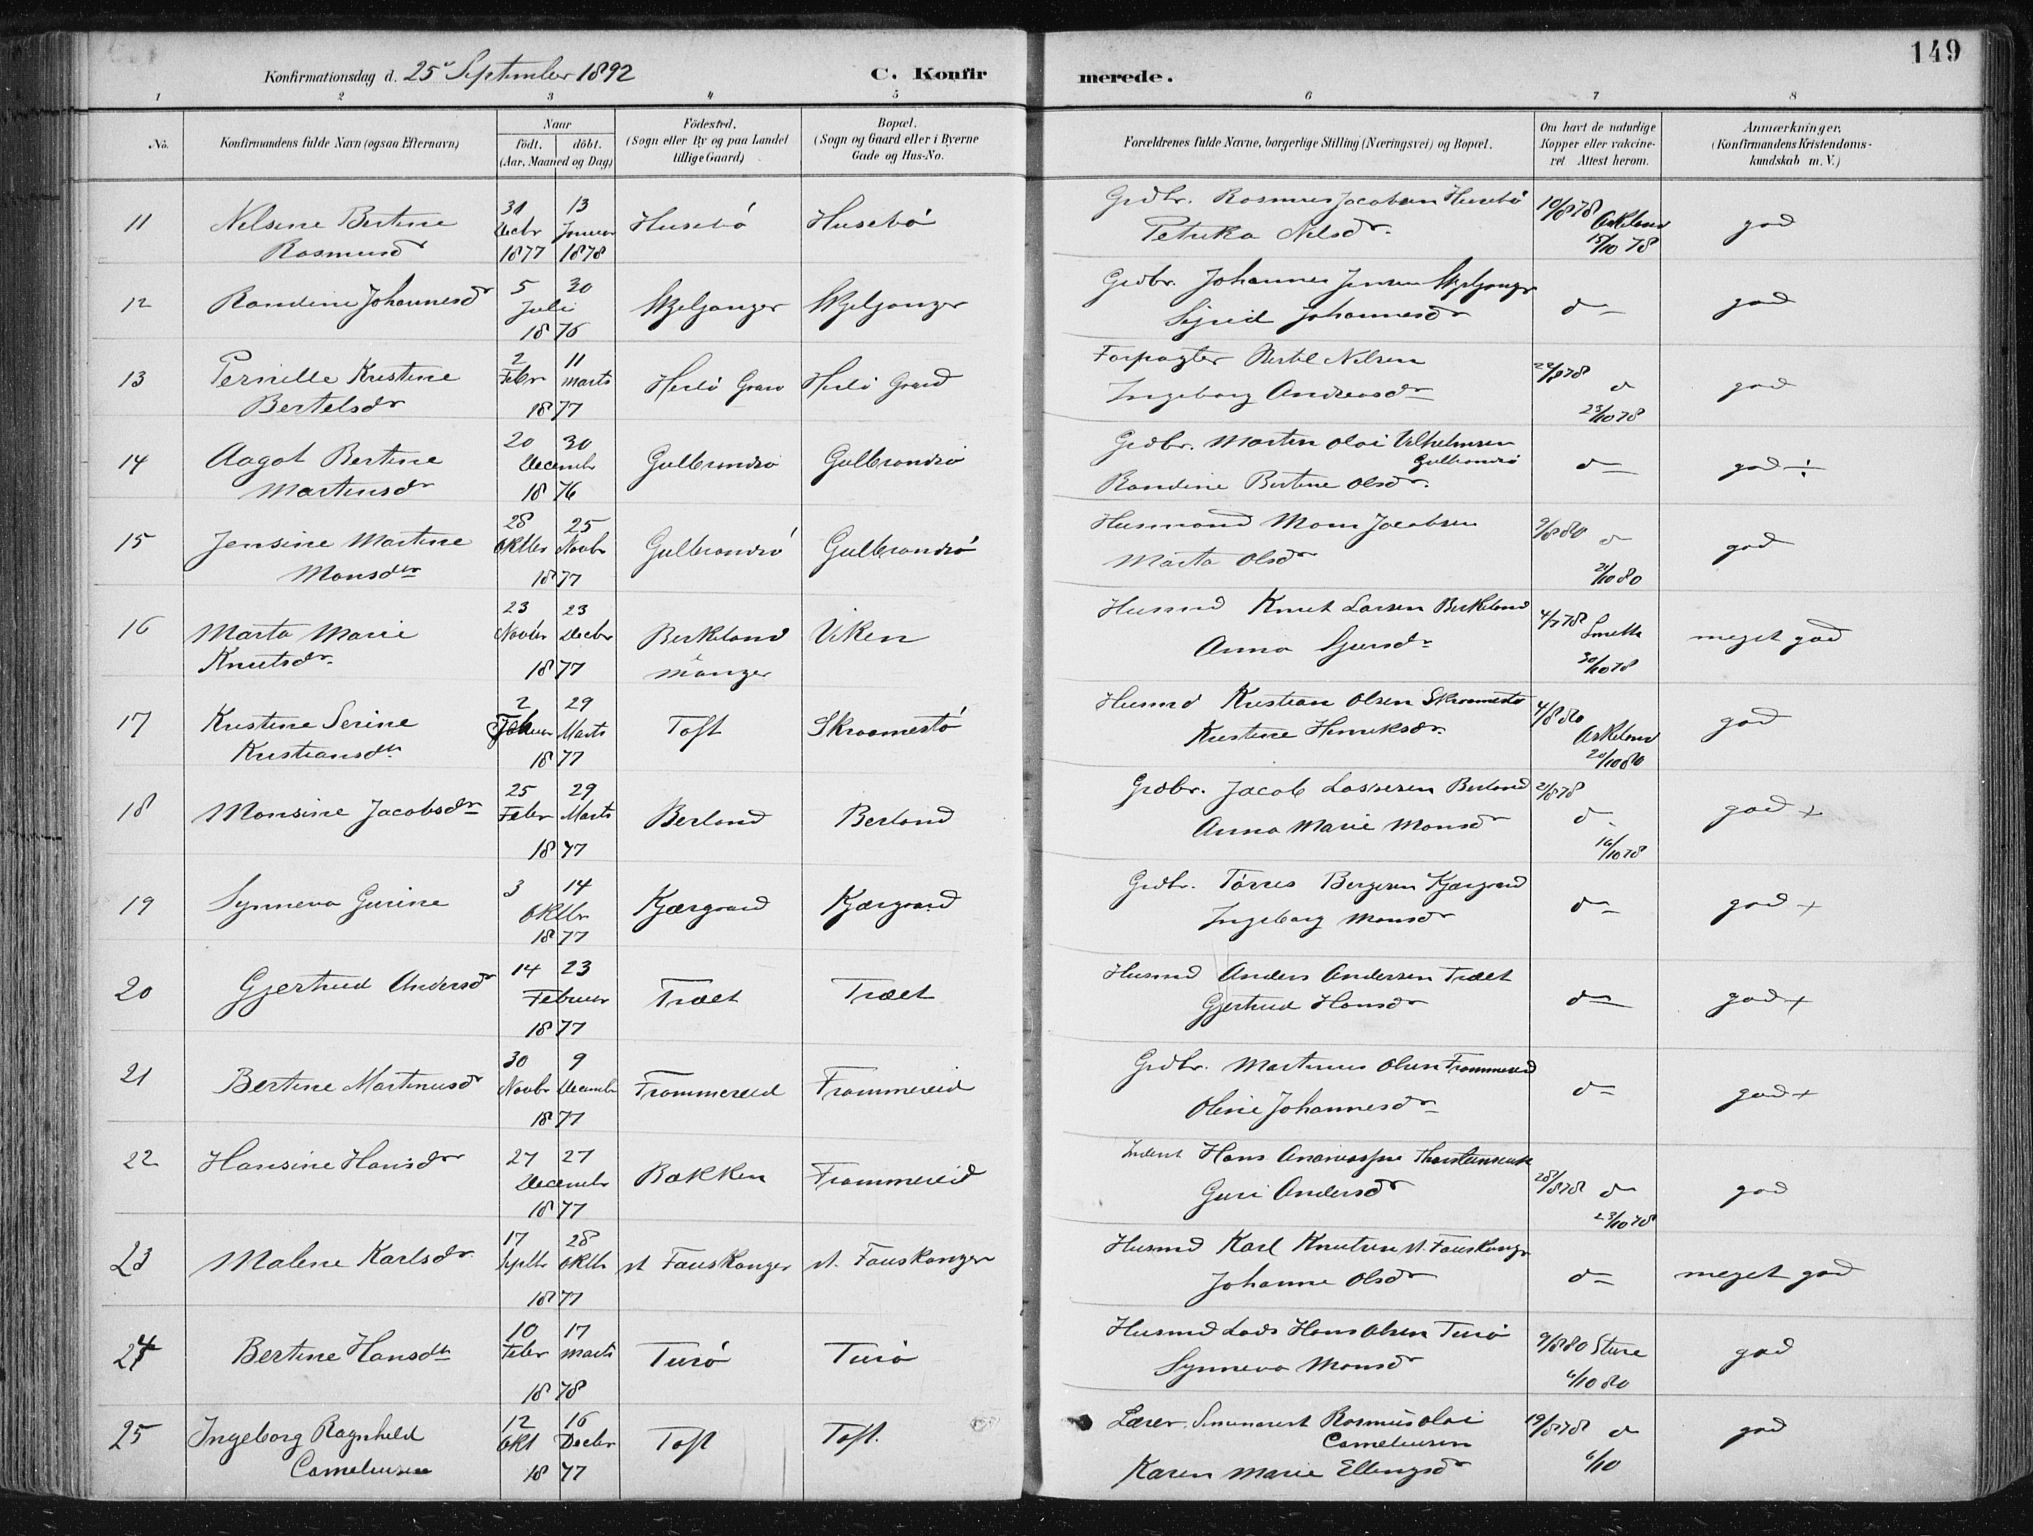 149
Konfirmationsdag d. 25 September 1892 C. Konfirmerede.
1 2 3 4 5 6 7 8
No. Konfirmandens fulde Navn (ogsaa Efternavn) Naar födt. döbt. (Aar, Maaned og Dag) Födested. (Sogn eller By og paa Landet tillige Gaard) Bopæl. (Sogn og Gaard eller i Byerne Gade og Hus-No. Forældrenes fulde Navne, borgerlige Stilling (Næringsvei) og Bopæl. Om havt de naturlige Kopper eller vakcineret Attest herom. Anmærkninger. (Konfirmandens Kristendomskundskab m. V.)
11 Nilsine Bertine Rasmusdr 31 Decbr 1877 13 Januar 1878 Husebö Husebö Grdbr. Rasmus Jacobsen Husebö
Petrika Nilsdr. 10/8 78 Askeland 15/10 78 god
12 Randine Johannesdr 5 30 Juli 1876 Skjeljanger Skjeljanger Grdbr. Johannes Jensen Skjeljanger
Sigrid Johannesdr d- god
13 Pernille Kristine Bertelsdr 2 Febr 11 Marts 1877 Herlö Gaard Herlö Gaard Forpagter Bertel Nilsen
Ingeborg Andreasdr d 23/10 78 god
14 Aagot Bertine Martinsdr 20 30 Decembr 1876 Gulbrandsö Gulbrandsö Grdbr. Martin Olai Vilhelmsen Gulbrandsö
Randine Bertine Olsdr. d- god ÷
15 Jensine Martine Monsdtr 28 Oktbr 25 Novbr 1877 Gulbrandsö Gulbrandsö Husmand Mons Jacobsen
Marta Olsdr 9/8 80 d 21/10 80 god
16 Marta Marie Knutsdr. 23 Novbr 23 Decbr 1877 Berkeland Manger Viken Husmd Knut Larsen Berkeland
Anna Sjursdr 4/7 78 30/10 78 meget god
17 Kristine Serine Kristiansdtr 2 Februar 29 Marts 1877 Toft Skraamestö Husmd Kristian Olsen Skraamestö
Kristine Henriksdr. 4/8 80 Askeland 20/10 80 god
18 Monsine Jacobsdr 25 Febr 29 Marts 1877 Berland Berland Grdbr. Jacob Lassesen Berland
Anna Marie Monsdr 21/8 78 d 16/10 78 god +
19 Synneva Gurine 3 14 Oktbr 1877 Kjærgaard Kjærgaard Grdbr. Törres Bergesen Kjærgaard
Ingeborg Monsdr d- god +
20 Gjertrud Andersdr 14 23 Februar 1877 Træet Træet Husmd Anders Andersen Træet
Gjertrud Hansdr d- god +
21 Bertine Martinusdr 30 Novbr 9 Decembr 1877 Frammereid Frammereid Grdbr. Martinus Olsen Frammereid
Oline Johannesdr d- god +
22 Hansine Hansdr 27 27 Decembr 1877 Bakken Frammereid Hans
Guri Andersdr 28/8 78 d 23/10 78 god
23 Malene Karlsdr. 17 Septbr 28 Oktbr 1877 st Fauskanger st. Fauskanger Husmd Karl Knutsen st. Fauskanger
Johanne Olsdr d- meget god
24 Bertine Hansdtr 10 Febr 17 Marts 1878 Turö Turö Husmd Lods Hans Olsen Turö
Synneva Monsdr 9/8 80 Sture 6/10 80 god
25 Ingeborg Ragnhild Corneliusen 12 Okt 16 Decbr 1877 Toft Toft. Lærer. Seminarist Rasmus Olai Corneliusen
Karen Marie Ellingsdr 19/8 78 d 6/10 god